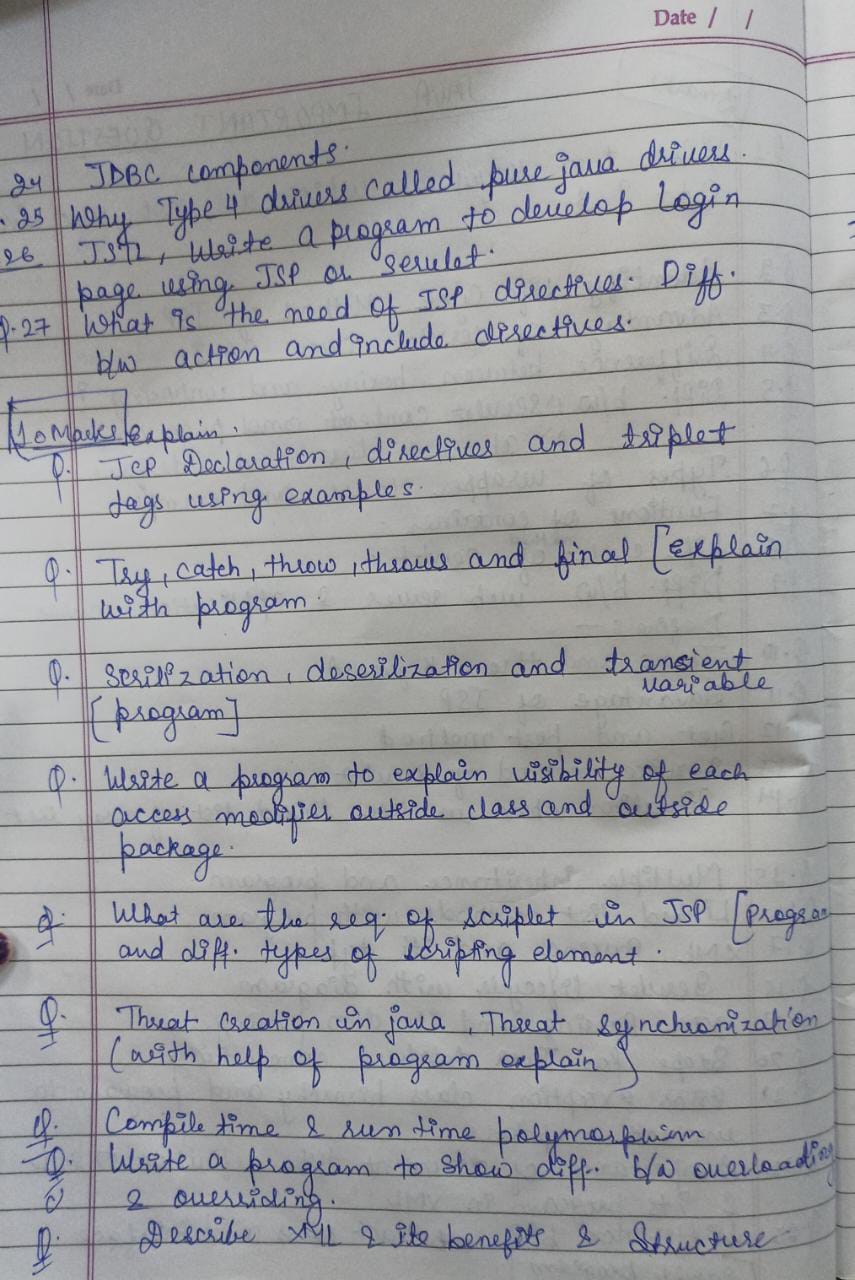 Date / /
24 JDBC components.
.25 Why Type 4 drivers called pure java drivers.
26 JSTL, Write a program to develop Login
page using JSP or servlet.
Q.27 What is the need of JSP directives. Diff.
b/w action and include directives.
10 Marks explain.
Q. JCP Declaration, directives and triplet
tags using examples.
Q. Try, catch, throw, throws and final [explain
with program.
Q. Serilization, deserilization and transient
variable
[program]
Q. Write a program to explain visibility of each
access modifier outside class and outside
package.
Q. What are the req. of scriplet in JSP [Progra
and diff. types of scripting element.
Q. Threat creation in java, Threat synchronization
(with help of program explain)
Q. Compile time & run time polymorphism
Q. Write a program to show diff. b/w overloading
& overriding.
Q. Describe XML & its benefits & Structure